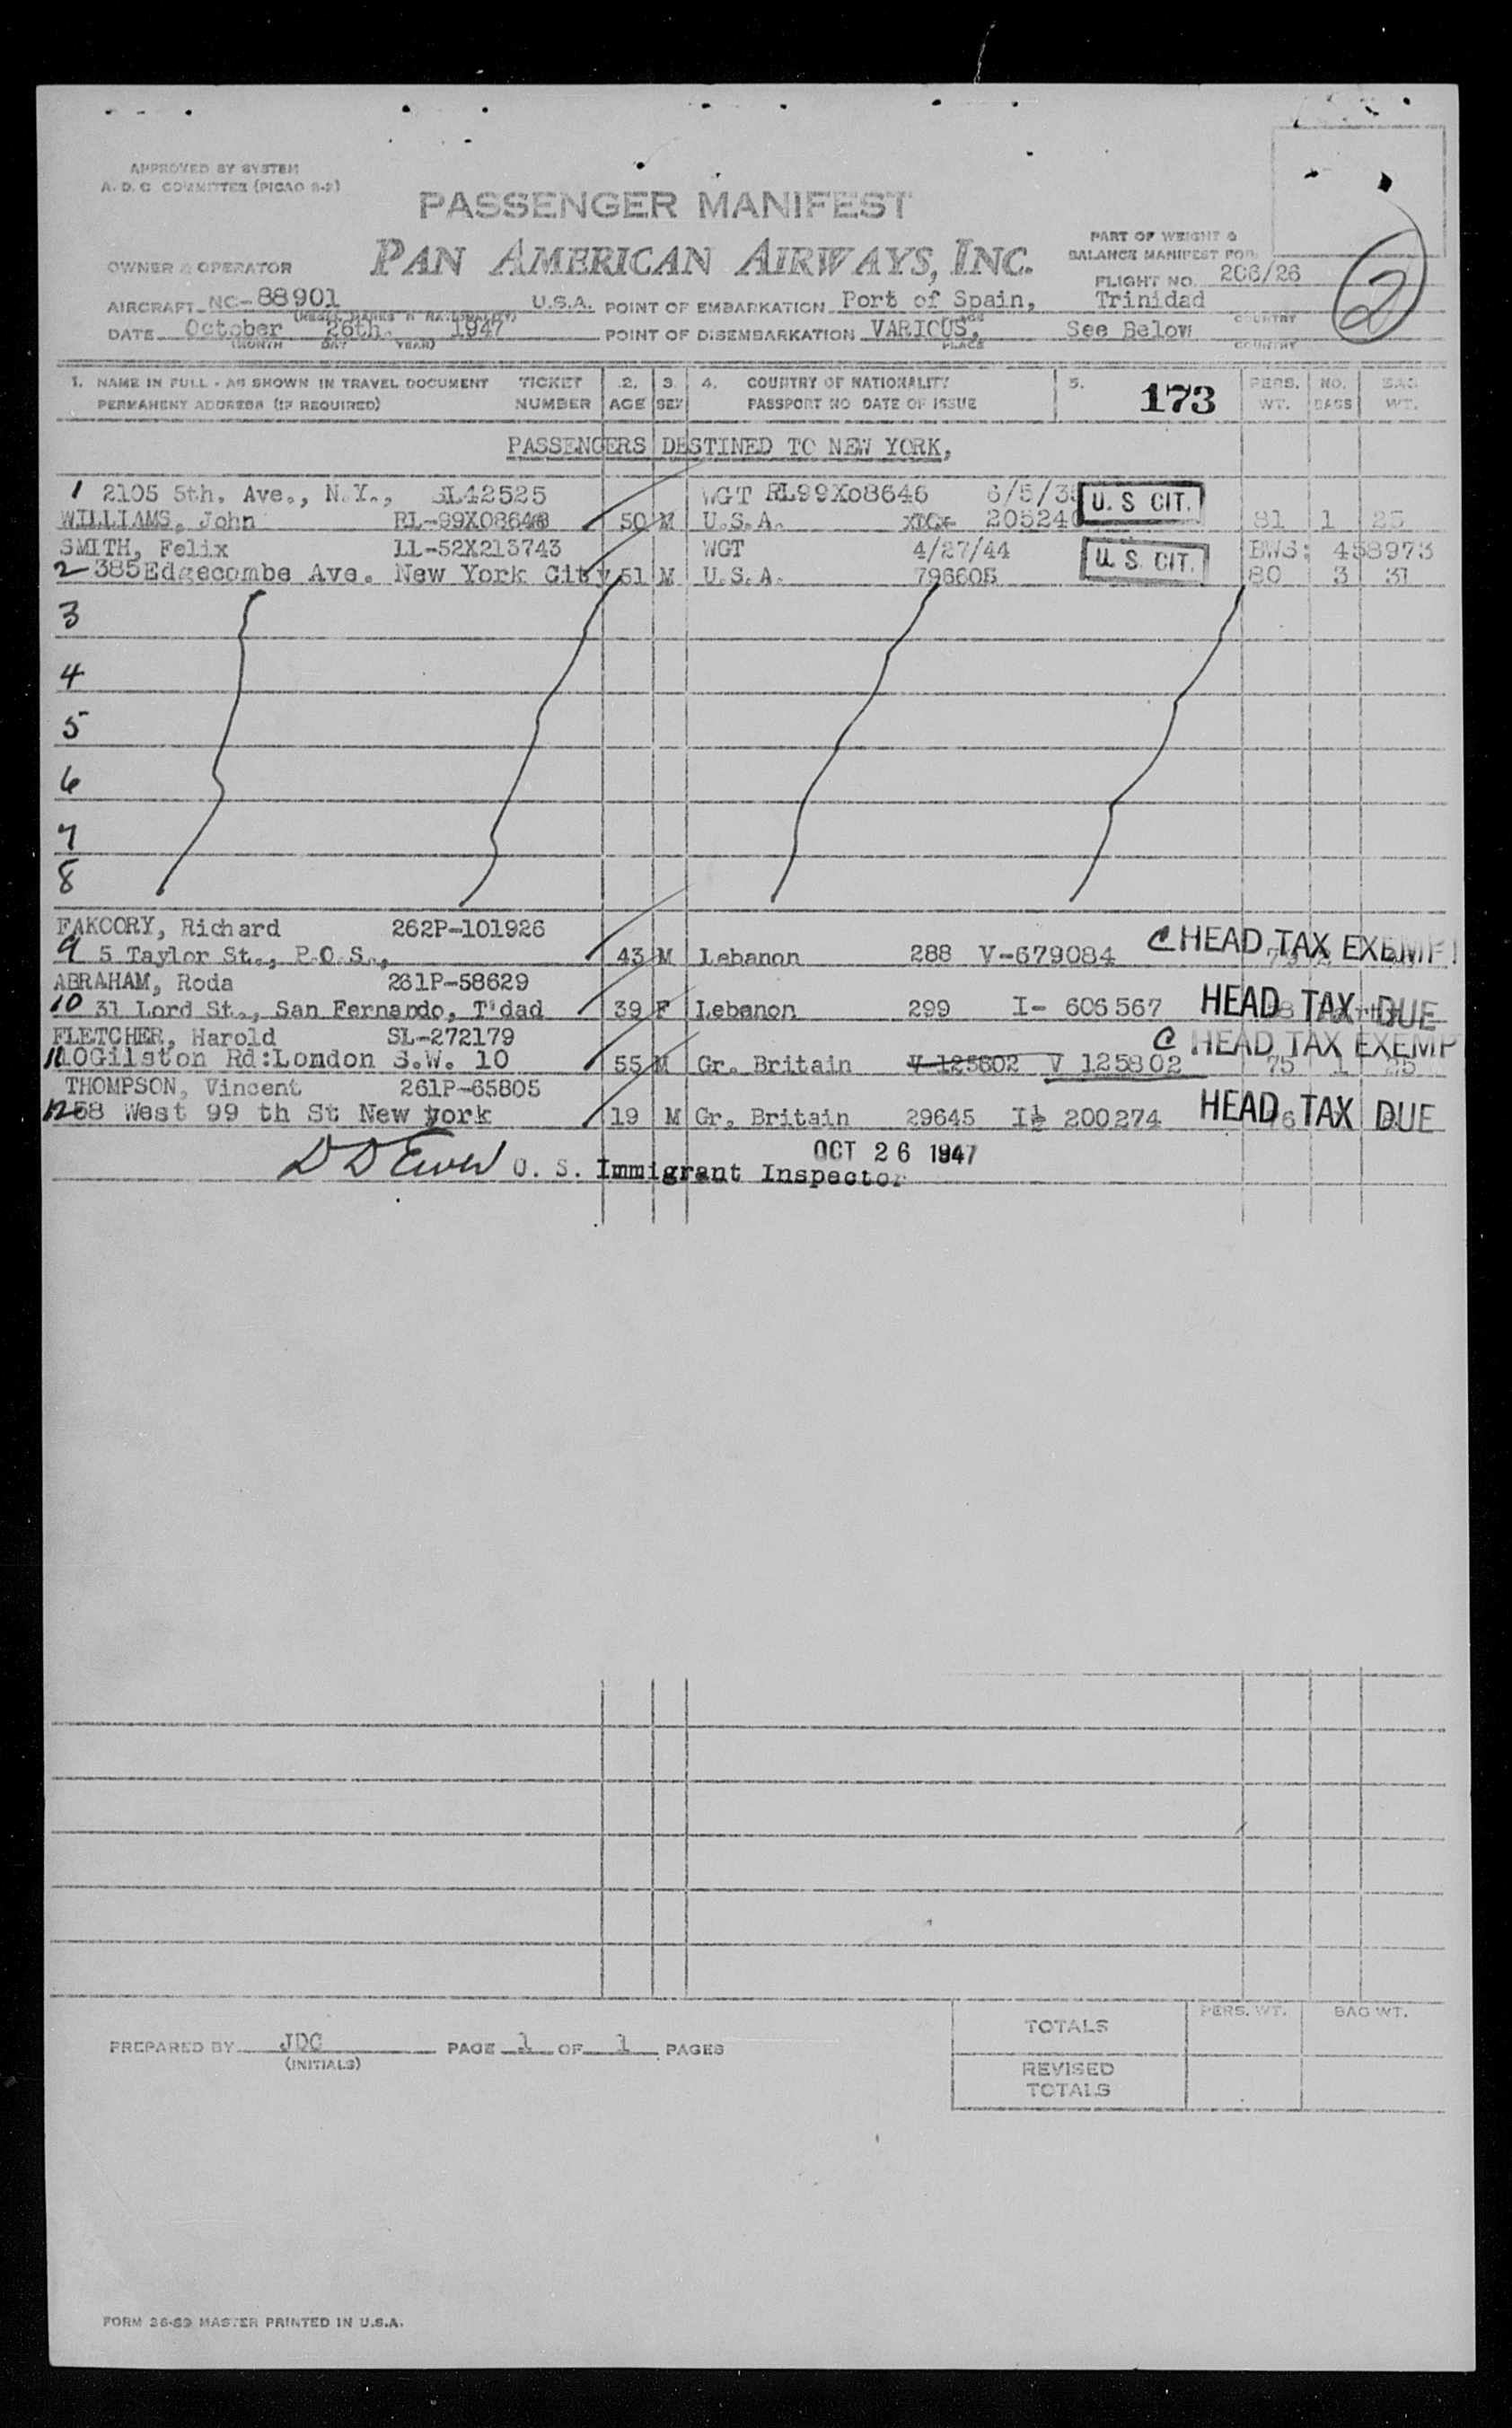 APPROVED BY SYSTEM
A. D. C COMMITTEE (PICAO
PASSENGER MANIFEST
PART OF WEIGHT &
BALANCE MANIFEST FOR
OWNER & OPERATOR PAN AMERICAN AIRWAYS, INC.
FLIGHT NO. 206/26
2
AIRCRAFT NC-88901 U.S.A. POINT OF EMBARKATION Port of Spain, Trinidad
DATE October 26th. 1947 POINT OF DISEMBARKATION VARIOUS, See Below
(MONTH DAY YEAR) PLACE COUNTRY
1. NAME IN FULL - AS SHOWN IN TRAVEL DOCUMENT TICKET 2. 3. 4. COUNTRY OF NATIONALITY 5. 173 PERS. NO. BAG
PERMANENT ADDRESS (IF REQUIRED) NUMBER AGE SEX PASSPORT NO DATE OF ISSUE WT. BAGS WT.
PASSENGERS DESTINED TO NEW YORK,
1 2105 5th. Ave., N.Y., SL42525 WGT RL99X08646 6/5/3 U. S CIT.
WILLIAMS, John RL-99X08646 50 M U.S.A. 205240 81 1 25
SMITH, Felix LL-52X213743 WGT 4/27/44 U. S. CIT. BWS: 458973
2 385Edgecombe Ave. New York City 51 M U.S.A. 796605 80 3 31
3
4
5
6
7
8
FAKOORY, Richard 262P-101926
9 5 Taylor St., P.O.S., 43 M Lebanon 288 V-679084 C HEAD TAX EXEMPT
ABRAHAM, Roda 261P-58629
10 31 Lord St., San Fernando, T'dad 39 F Lebanon 299 I- 606567 HEAD TAX DUE
FLETCHER, Harold SL-272179 C HEAD TAX EXEMP
11 10Gilston Rd:London S.W. 10 55 M Gr. Britain V-125602 V 125802 75 1 25
THOMPSON, Vincent 261P-65805
12 58 West 99 th St New york 19 M Gr. Britain 29645 I½ 200274 HEAD TAX DUE
OCT 26 1947
U. S. Immigrant Inspector
PERS. WT. BAG WT.
TOTALS
PREPARED BY JDC PAGE 1 OF 1 PAGES
(INITIALS)
REVISED
TOTALS
FORM 36-69 MASTER PRINTED IN U.S.A.